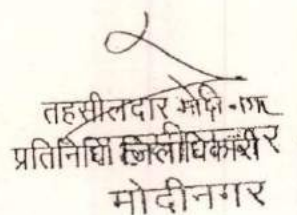 तहसीलदार मोदीनगर
प्रतिनिधि जिलाधिकारी
मोदीनगर